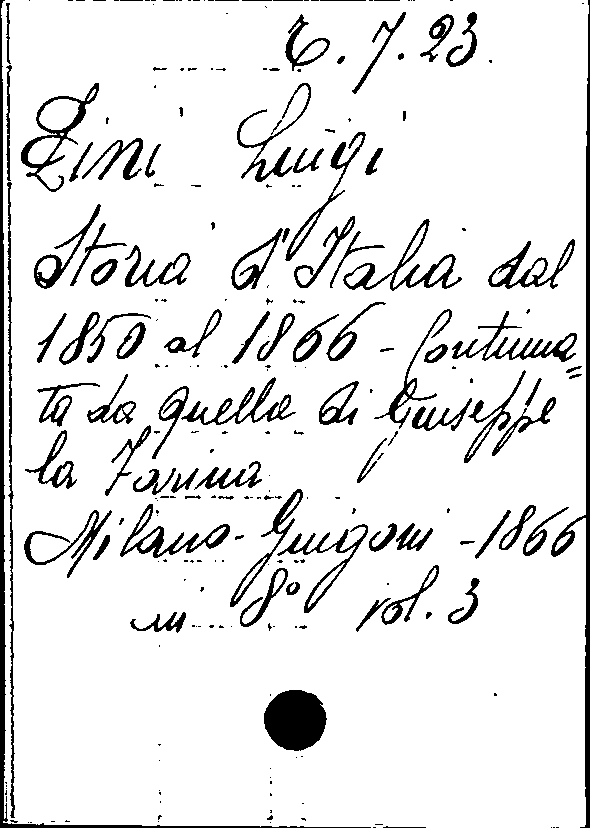 6.7.23
Zini Luigi
Storia d'Italia dal
1850 al 1866 - Continua=
ta da quella di Giuseppe
la Farina
Milano - Guigoni - 1866
in 8° vol. 3